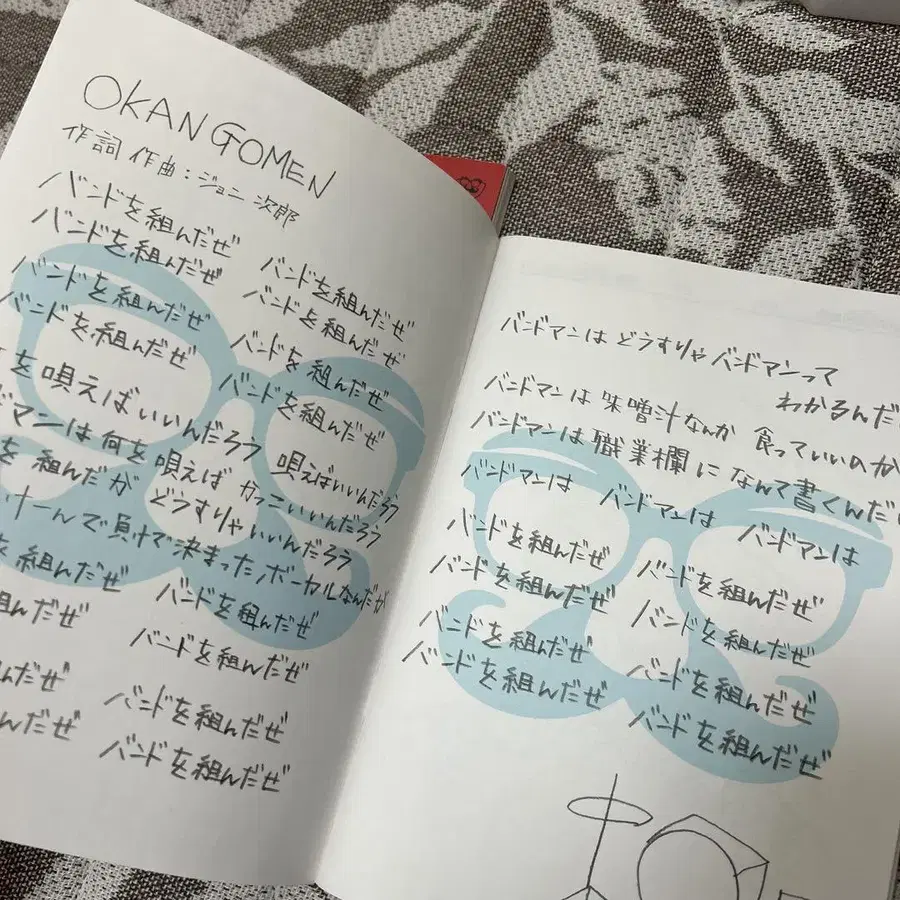 OKAN GOMEN
作詞 作曲:ジョニー 次郎
バンドを組んだぜ
バンドを組んだぜ バンドを組んだぜ
バンドを組んだぜ バンドを組んだぜ
バンドを組んだぜ バンドを組んだぜ
を唄えばいいんだろう バンドを組んだぜ
マンは何を唄えば かっこいいんだろう 唄えばいいんだろう
を組んだが どうすりゃいいんだろう
んで負けで決まったボーカルなんだが
組んだぜ バンドを組んだぜ
組んだぜ バンドを組んだぜ
んだぜ バンドを組んだぜ
んだぜ バンドを組んだぜ
バンドマンは どうすりゃ バンドマンって
わかるんだ
バンドマンは 味噌汁なんか 食っていいのか
バンドマンは 職業欄に なんて書くんだ
バンドマンは バンドマンは バンドマンは
バンドを組んだぜ バンドを組んだぜ
バンドを組んだぜ バンドを組んだぜ
バンドを組んだぜ バンドを組んだぜ
バンドを組んだぜ バンドを組んだぜ